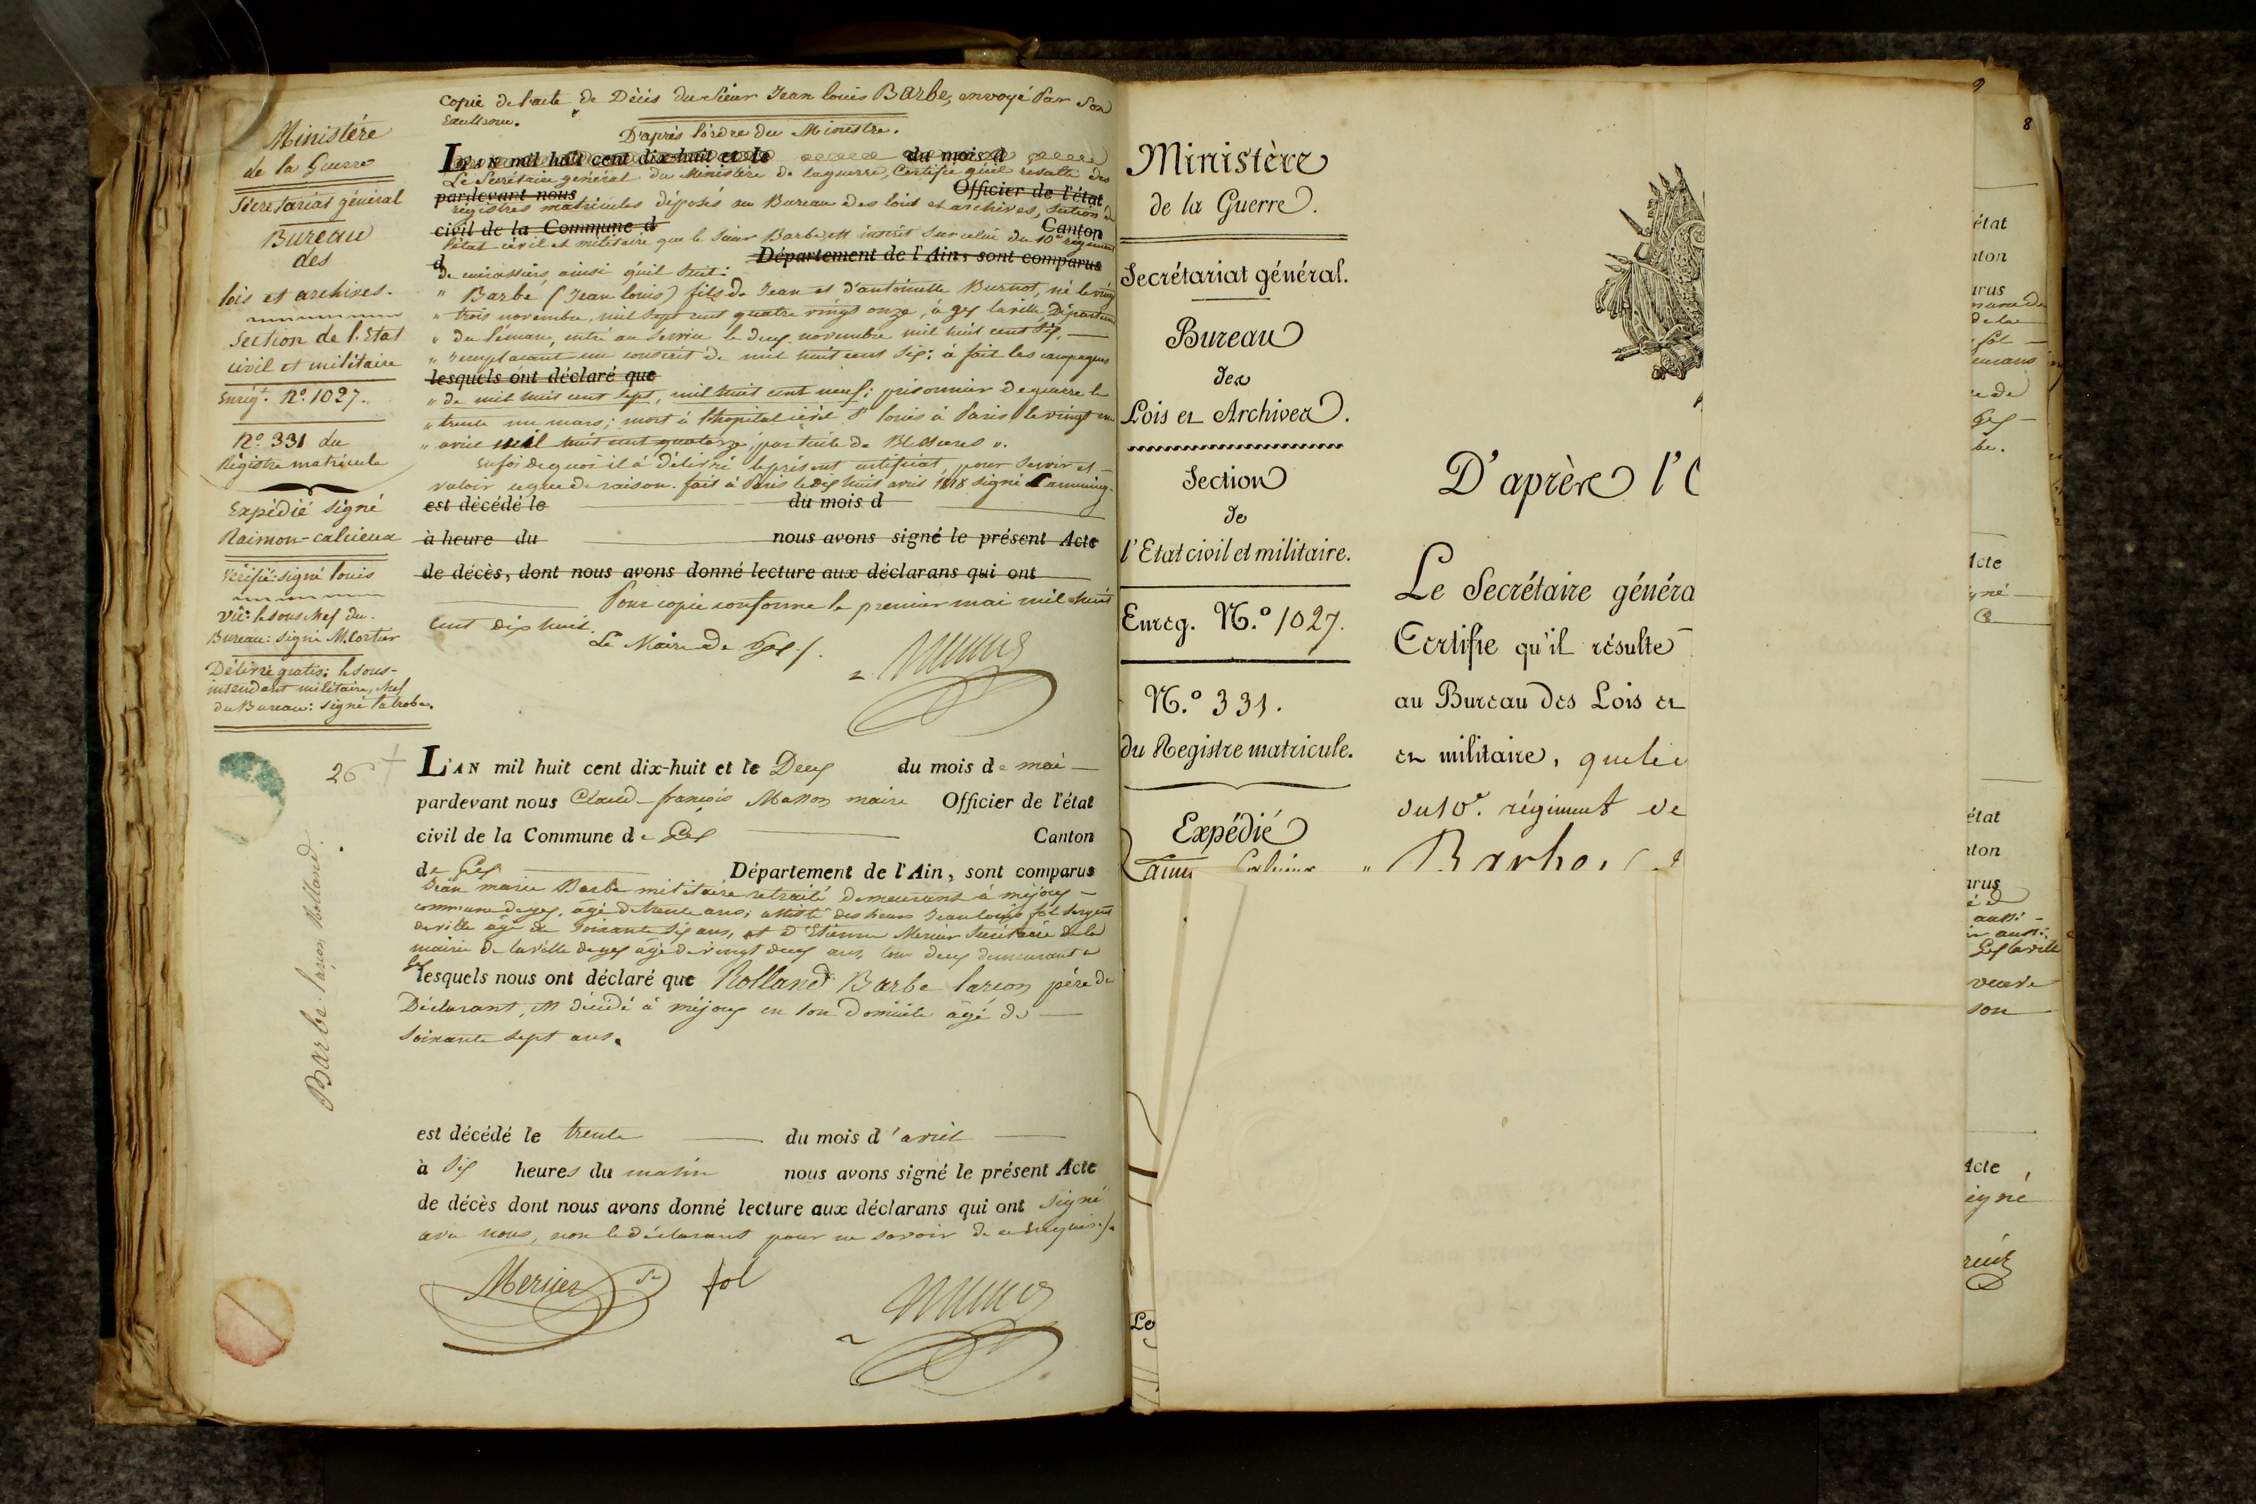 Copie de l'acte de Décès du Sieur Jean louis Barbe, envoyé Par Son
D'après l'ordre du Ministre.
L'AN mil huit cent dix-huit et le du mois d
Le Secrétaire général du Ministère de la guerre, Certifie qu'il résulte des
pardevant nous Officier de l'état
régistres matricules déposés au Bureau des lois et archives, section de
civil de la Commune d Canton
l'état civil et militaire que le Sieur Barbe, est inscrit sur celui du 10e régiment
d Département de l'Ain, sont comparus
de cuirassiers, ainsi qu'il suit:
" Barbe (Jean louis) fils de Jean et d'antoinette Burnot, né le vingt
" trois novembre, mil sept cent quatre vingt onze, à gex la ville, Département
" du Léman, entré au Service le deux novembre mil huit cent six,
" remplacant un conscrit de mil huit cent six: à fait les campagnes
lesquels ont déclaré que
" de mil huit cent sept, mil huit cent neuf; prisonnier de guerre le
" trente un mars; mort à l'hopital civil St louis à Paris le vingt un
" avril mil huit cent quatorze, par suite de Blessures ".
En foi de quoi il à délivré le présent certificat, pour servir et
valoir ce que de raison. fait à Paris le dix huit avril 1818 signé
est décédé le du mois d
à heure du nous avons signé le présent Acte
de décès, dont nous avons donné lecture aux déclarans qui ont
Pour copie conforme le premier mai mil huit
Cent dix huit.
Le Maire de Gex /.
Ministère
de la Guerre
Sécrétariat général
Bureau
des
lois et archives.
Section de l'Etat
civil et militaire
Enregt. No. 1027.
No. 331 du
Régistre matricule
Expédié signé
Raimon-calvieux
Vérifié: signé louis
Vû: le sous chef du
Bureau: signé M. Cortier
Délivré gratis: le sous-
intendant militaire, chef
du Bureau: signé
26
Barbe larçon Rolland.
L'AN mil huit cent dix-huit et le Deux du mois de mai
pardevant nous Claude-françois Masson maire Officier de l'état
civil de la Commune de Gex Canton
de Gex Département de l'Ain, sont comparus
Jean marie Barbe militaire retraité demeurant à méjoux
commune de gex, âgé de trente ans; assisté des sieurs Jean louis fol sergent
de ville âgé de soixante six ans, et d'Etienne Mercier Secrétaire de la
mairie de la ville de gex âgé de vingt deux ans, tous deux demeurant à
Gex
lesquels nous ont déclaré que Rolland Barbe larcon père du
Déclarant, est décédé à méjoux en son domicile âgé de
soixante sept ans.
est décédé le trente du mois d'avril
à six heures du matin nous avons signé le présent Acte
de décès dont nous avons donné lecture aux déclarans qui ont signé
avec nous, non le déclarant pour ne savoir de ce enquis./.
Mercier fol
Ministère
de la Guerre.
Secrétariat général.
Bureau
des
Lois et Archives.
Section
de
l'Etat civil et militaire.
Enreg. N.º 1027.
N.º 331.
du Registre matricule.
Expédié
D'après l'
Le Secrétaire généra
Certifie qu'il résulte
au Bureau des Lois et
et militaire, que le
du 10e. régiment de
Barbe, (
Le
8
état
Acte
état
Acte
igné